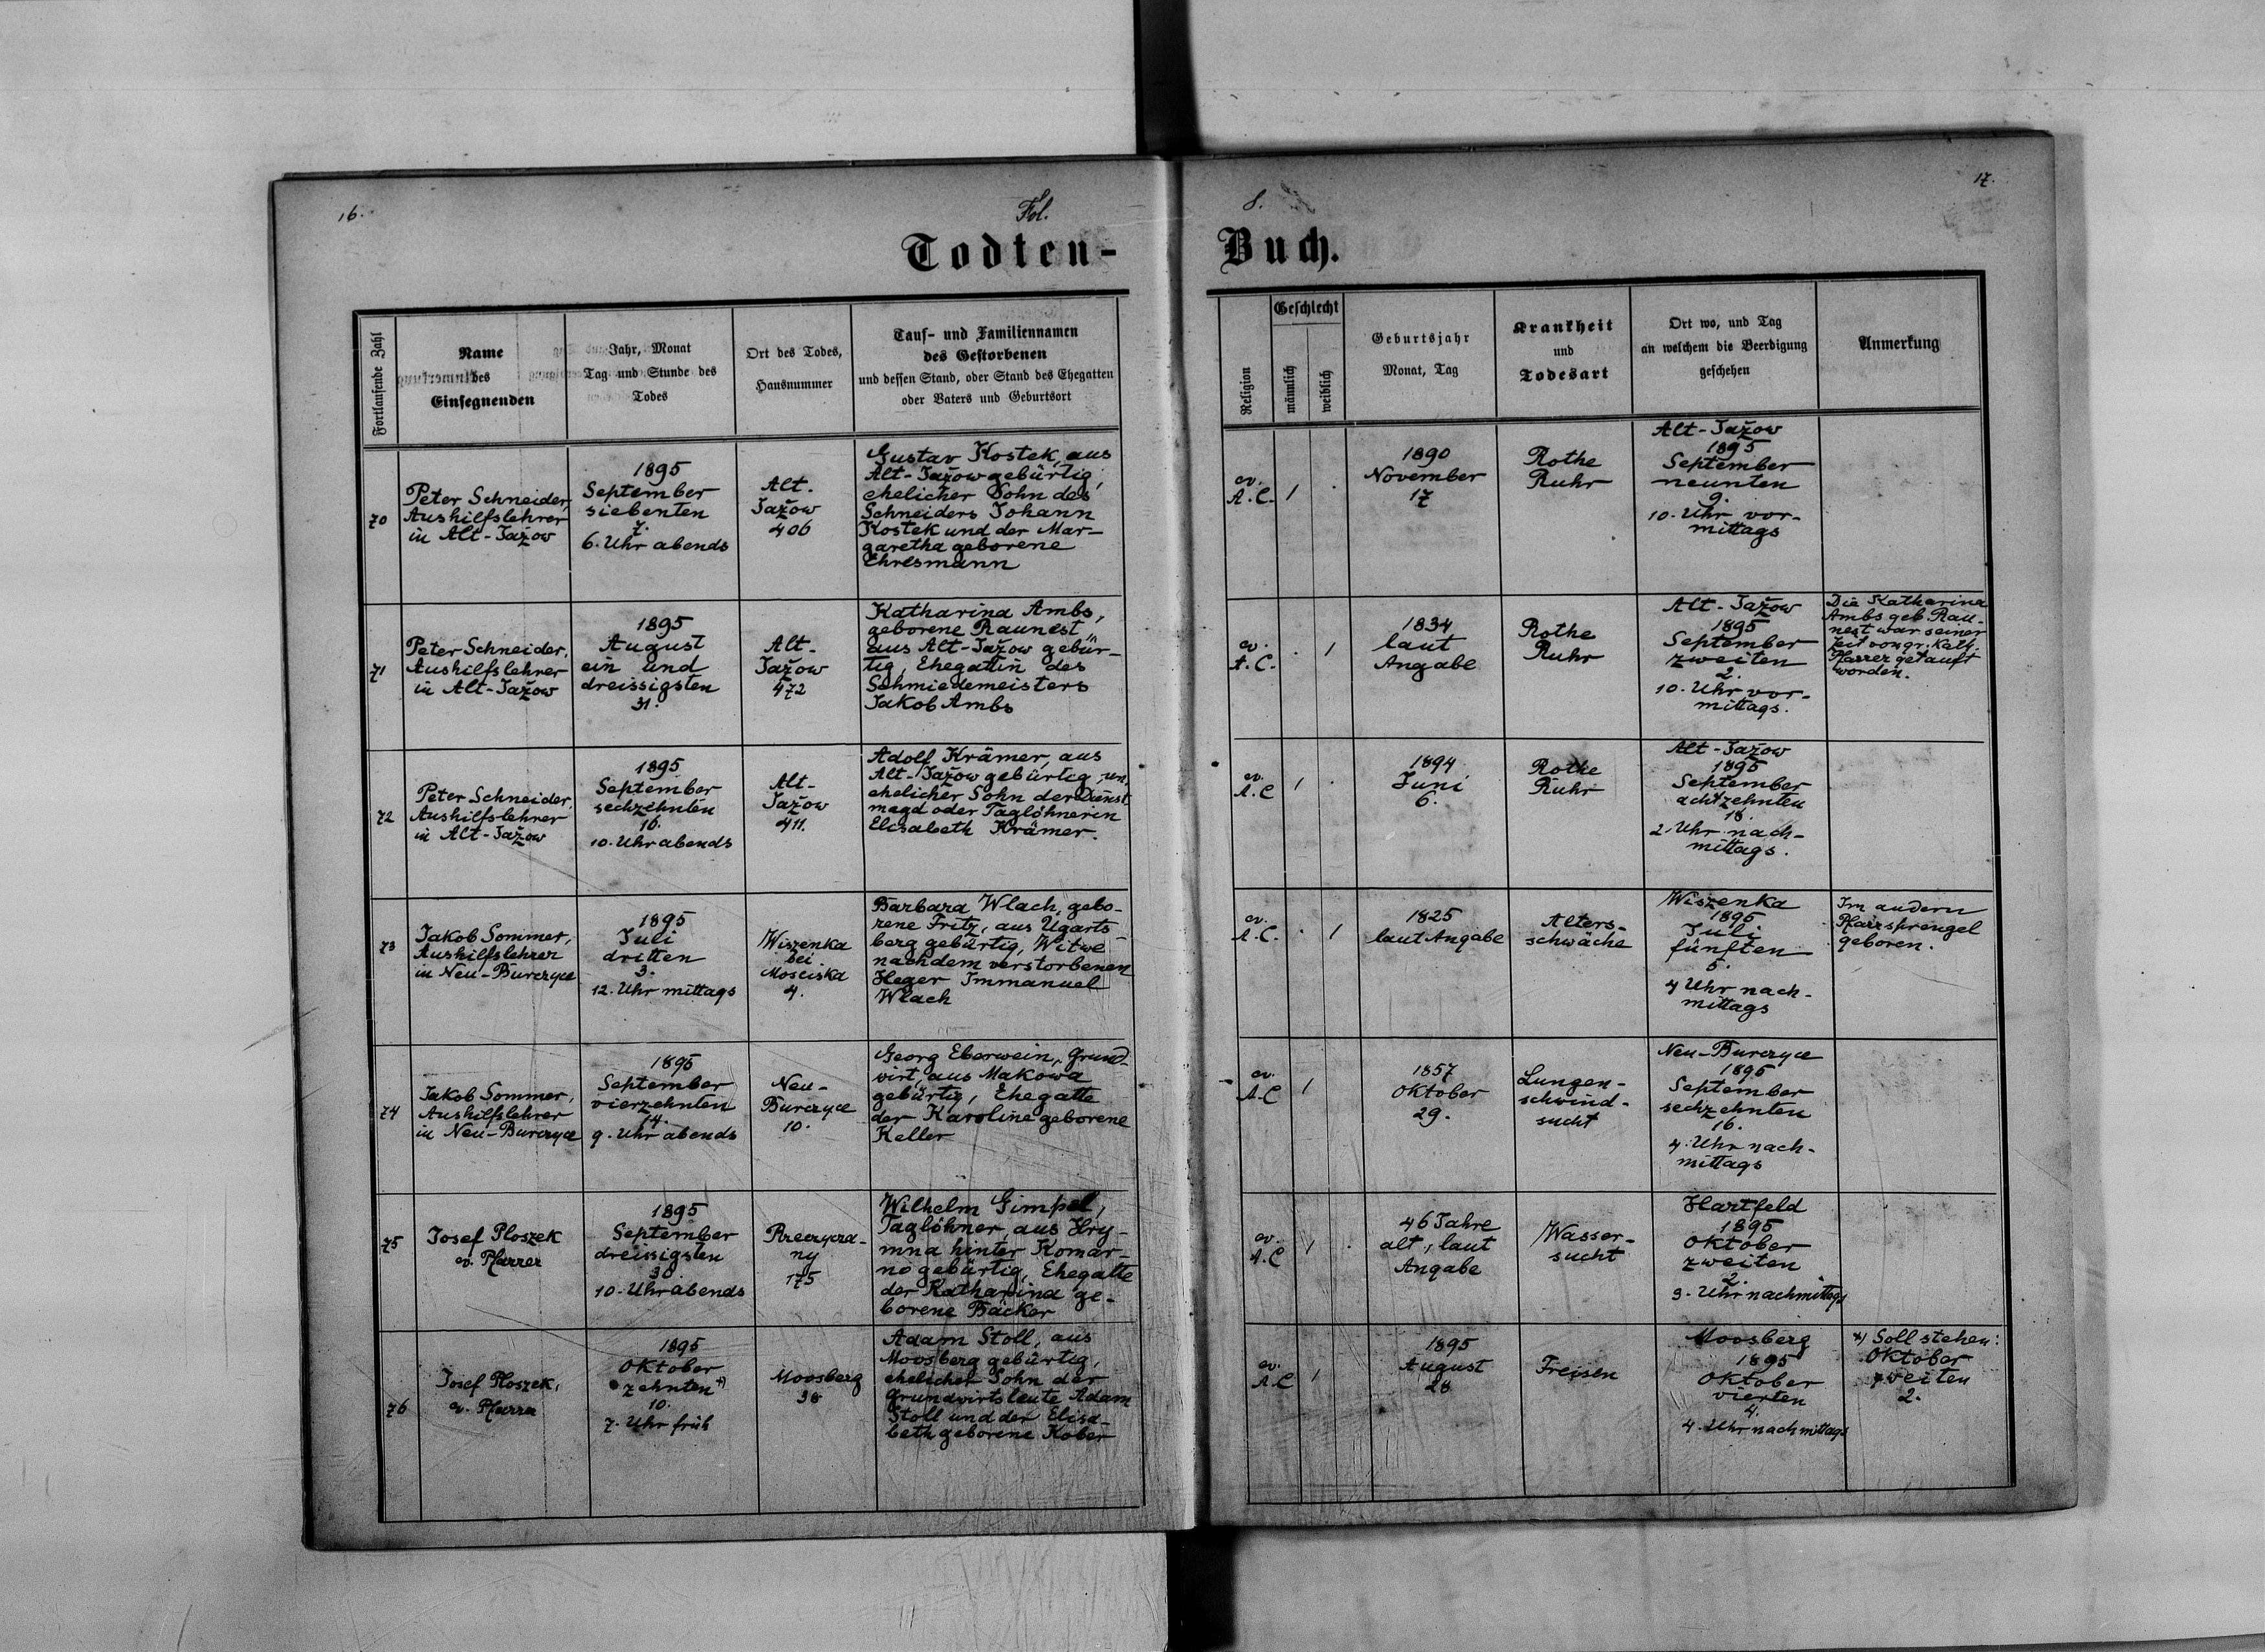 16.
Fol.
8.
17.
Todten-
Buch.
Fortlaufende Zahl
Name
des
Einsegnenden
Jahr, Monat
Tag und Stunde des
Todes
Ort des Todes,
Hausnummer
Tauf- und Familiennamen
des Gestorbenen
und dessen Stand, oder Stand des Ehegatten
oder Vaters und Geburtsort
Religion
Geschlecht
männlich
weiblich
Geburtsjahr
Monat, Tag
Krankheit
und
Todesart
Ort wo, und Tag
an welchem die Beerdigung
geschehen
Anmerkung
70
Peter Schneider,
Aushilfslehrer
in Alt-Jažow
1895
September
siebenten
7.
6. Uhr abends
Alt-
Jažow
406
Gustav Kostek, aus
Alt-Jažow gebürtig,
ehelicher Sohn des
Schneiders Johann
Kostek und der Mar-
garetha geborene
Ehresmann
ev.
A.C.
1
.
1890
November
17
Rothe
Ruhr
Alt-Jažow
1895
September
neunten
9.
10. Uhr vor-
mittags
71
Peter Schneider,
Aushilfslehrer
in Alt-Jažow
1895
August
ein und
dreissigsten
31.
Alt-
Jažow
472
Katharina Ambs,
geborene Raunest,
aus Alt-Jažow gebür-
tig, Ehegattin des
Schmiedemeisters
Jakob Ambs
ev.
A.C.
.
1
1834
laut
Angabe
Rothe
Ruhr
Alt-Jažow
1895
September
zweiten
2.
10. Uhr vor-
mittags.
Die Katharina
Ambs geb. Rau-
nest war seiner
Zeit von gr. Kath.
Pfarrer getauft
worden.
72
Peter Schneider,
Aushilfslehrer
in Alt-Jažow
1895
September
sechzehnten
16.
10. Uhr abends
Alt-
Jažow
411.
Adolf Krämer, aus
Alt-Jažow gebürtig, un
ehelicher Sohn der Dienst
magd oder Taglöhnerin
Elisabeth Krämer.
ev.
A.C
1
.
1894
Juni
6.
Rothe
Ruhr
Alt-Jažow
1895
September
achtzehnten
18.
2. Uhr nach-
mittags.
73
Jakob Sommer,
Aushilfslehrer
in Neu-Burczyce
1895
Juli
dritten
3.
12. Uhr mittags
Wiszenka
bei
Mosciska
4.
Barbara Wlach, gebo-
rene Fritz, aus Ugarts-
berg gebürtig, Witwe
nach dem verstorbenen
Heger Immanuel
Wlach
ev.
A.C.
.
1
1825
laut Angabe
Alters-
schwäche
Wiszenka
1895
Juli
fünften
5.
4 Uhr nach-
mittags
Im andern
Pfarrsprengel
geboren.
74
Jakob Sommer,
Aushilfslehrer
in Neu-Burczyce
1895
September
vierzehnten
14.
9. Uhr abends
Neu-
Burczyce
10.
Georg Eberwein, Grund-
wirt, aus Makowa
gebürtig, Ehegatte
der Karoline geborene
Keller
ev.
A.C
1
1857
Oktober
29.
Lungen-
schwind-
sucht
Neu-Burczyce
1895
September
sechzehnten
16.
4. Uhr nach-
mittags
75
Josef Ploszek
ev. Pfarrer
1895
September
dreissigsten
30.
10. Uhr abends
Rzeczycza-
ny
175
Wilhelm Gimpel,
Taglöhner, aus Hry-
mna hinter Komar-
no gebürtig, Ehegatte
der Katharina ge-
borene Bäcker
ev.
A.C
1
.
46 Jahre
alt, laut
Angabe
Wasser-
sucht
Hartfeld
1895
Oktober
zweiten
2.
3. Uhr nachmittags
76
Josef Ploszek,
ev. Pfarrer
1895
Oktober
zehnten *)
10.
7. Uhr früh
Moosberg
38
Adam Stoll, aus
Moosberg gebürtig,
ehelicher Sohn der
Grundwirtsleute Adam
Stoll und der Elisa-
beth geborene Kober
ev.
A.C
1
1895
August
28
Freisen
Moosberg
1895
Oktober
vierten
4.
4. Uhr nachmittags
*) Soll stehen:
Oktober
zweiten
2.